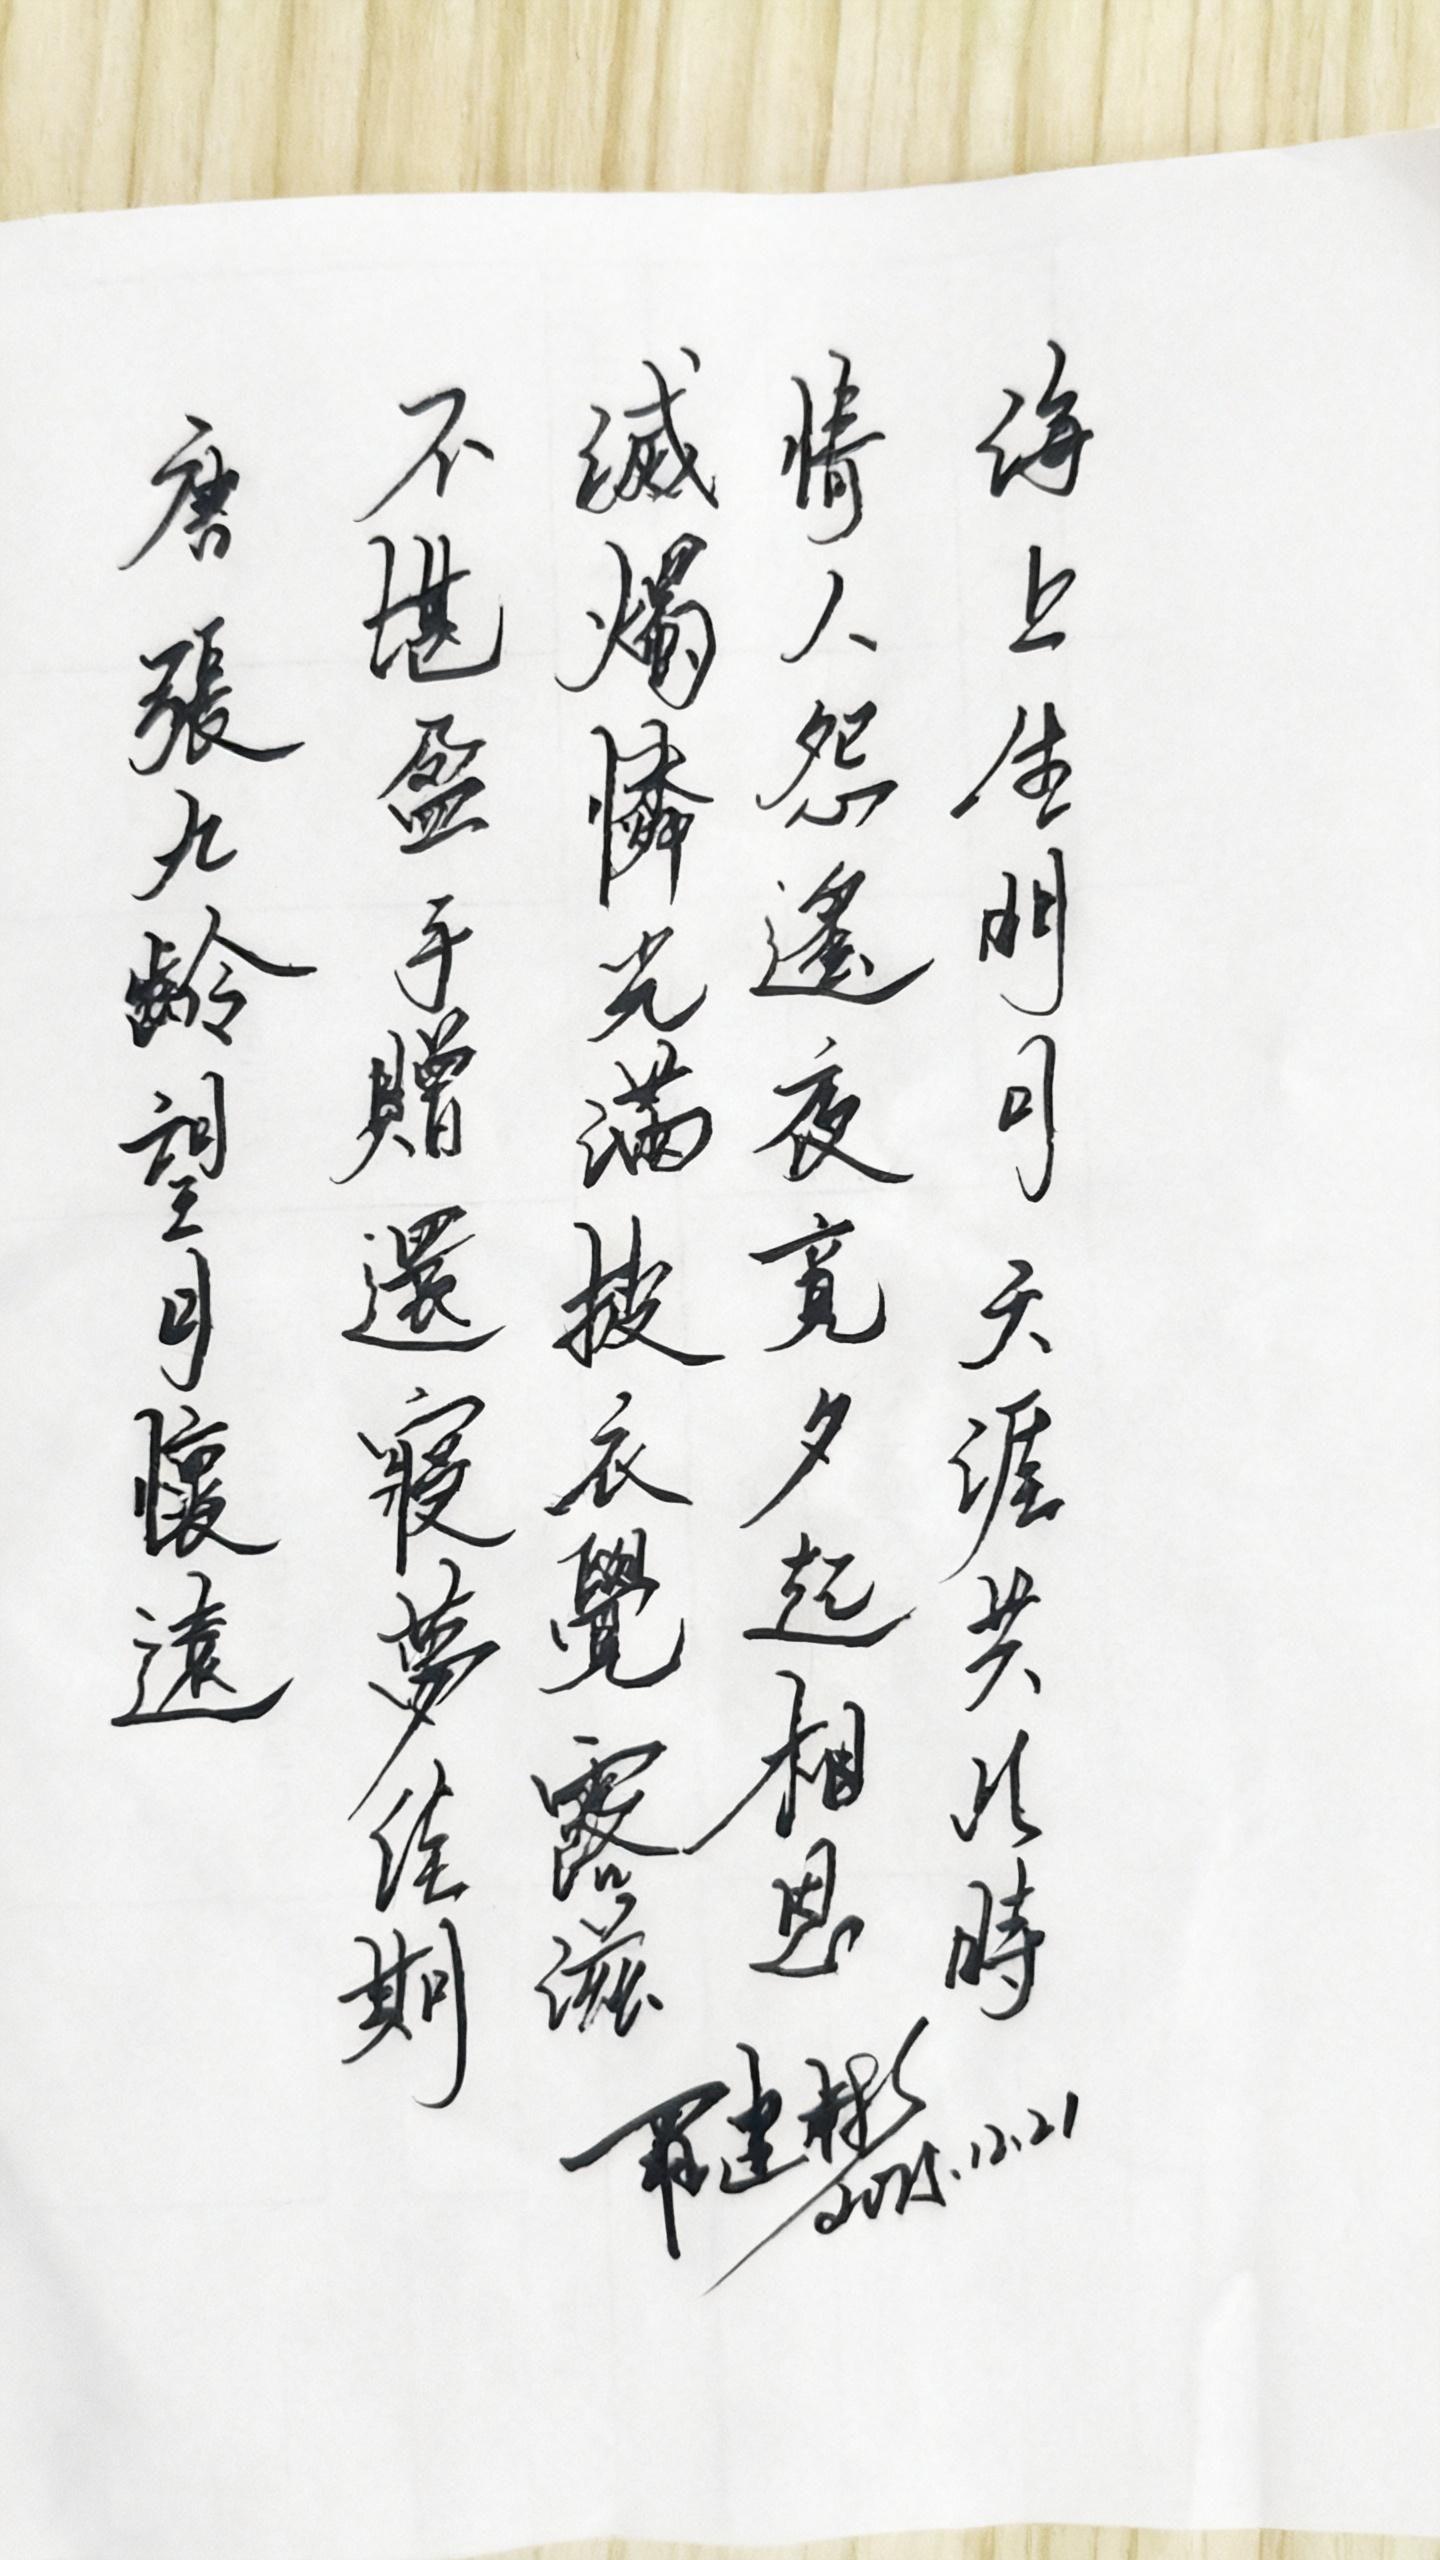 海上生明月天涯共此時
情人怨遙夜竟夕起相思
滅燭憐光滿披衣覺露滋
不堪盈手贈還寢夢佳期
唐張九齡望月懷遠
2025.12.21